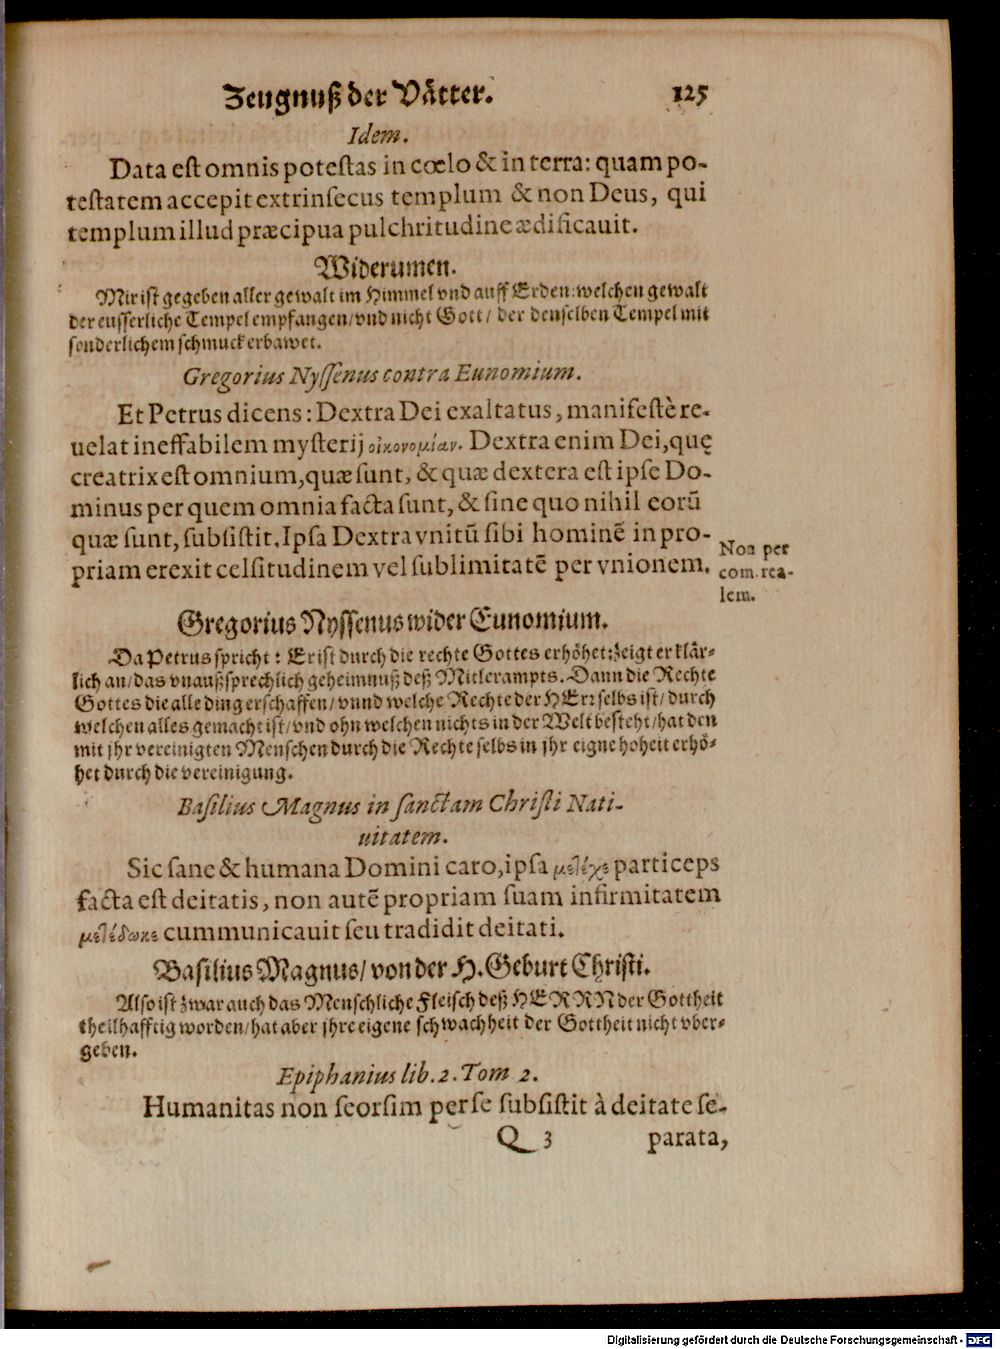 Zeugnuß der Vätter. 125
Idem.
Data est omnis potestas in cœlo & in terra: quam po-
testatem accepit extrinsecus templum & non Deus, qui
templum illud præcipua pulchritudine ædificauit.
Widerumen.
Mir ist gegeben aller gewalt im Himmel vnd auff Erden: welchen gewalt
der eusserliche Tempel empfangen/ vnd nicht Gott/ der denselben Tempel mit
sonderlichem schmuck erbawet.
Gregorius Nyssenus contra Eunomium.
Et Petrus dicens: Dextra Dei exaltatus, manifestè re-
uelat ineffabilem mysterij οἰκονομίαν. Dextra enim Dei, quę
creatrix est omnium, quæ sunt, & quæ dextera est ipse Do-
minus per quem omnia facta sunt, & sine quo nihil eorū
quæ sunt, subsistit. Ipsa Dextra vnitū sibi hominē in pro-
priam erexit celsitudinem vel sublimitatē per vnionem.
Non per
com. rea-
lem.
Gregorius Nyssenus wider Eunomium.
Da Petrus spricht: Er ist durch die rechte Gottes erhöhet: zeigt er klär-
lich an/ das vnaußsprechlich geheimnuß deß Mitlerampts. Dann die Rechte
Gottes die alle ding erschaffen/ vnnd welche Rechte der HErr selbs ist/ durch
welchen alles gemacht ist/ vnd ohn welchen nichts in der Welt besteht/ hat den
mit jhr vereinigten Menschen durch die Rechte selbs in jhr eigne hoheit erhö-
het durch die vereinigung.
Basilius Magnus in sanctam Christi Nati-
uitatem.
Sic sane & humana Domini caro, ipsa μετέχε particeps
facta est deitatis, non autē propriam suam infirmitatem
μετέδωκε cummunicauit seu tradidit deitati.
Basilius Magnus/ von der H. Geburt Christi.
Also ist zwar auch das Menschliche Fleisch deß HERRN der Gottheit
theilhafftig worden/ hat aber jhre eigene schwachheit der Gottheit nicht vber-
geben.
Epiphanius lib. 2. Tom 2.
Humanitas non seorsim per se subsistit à deitate se-
Q 3 parata,
Digitalisierung gefördert durch die Deutsche Forschungsgemeinschaft - DFG